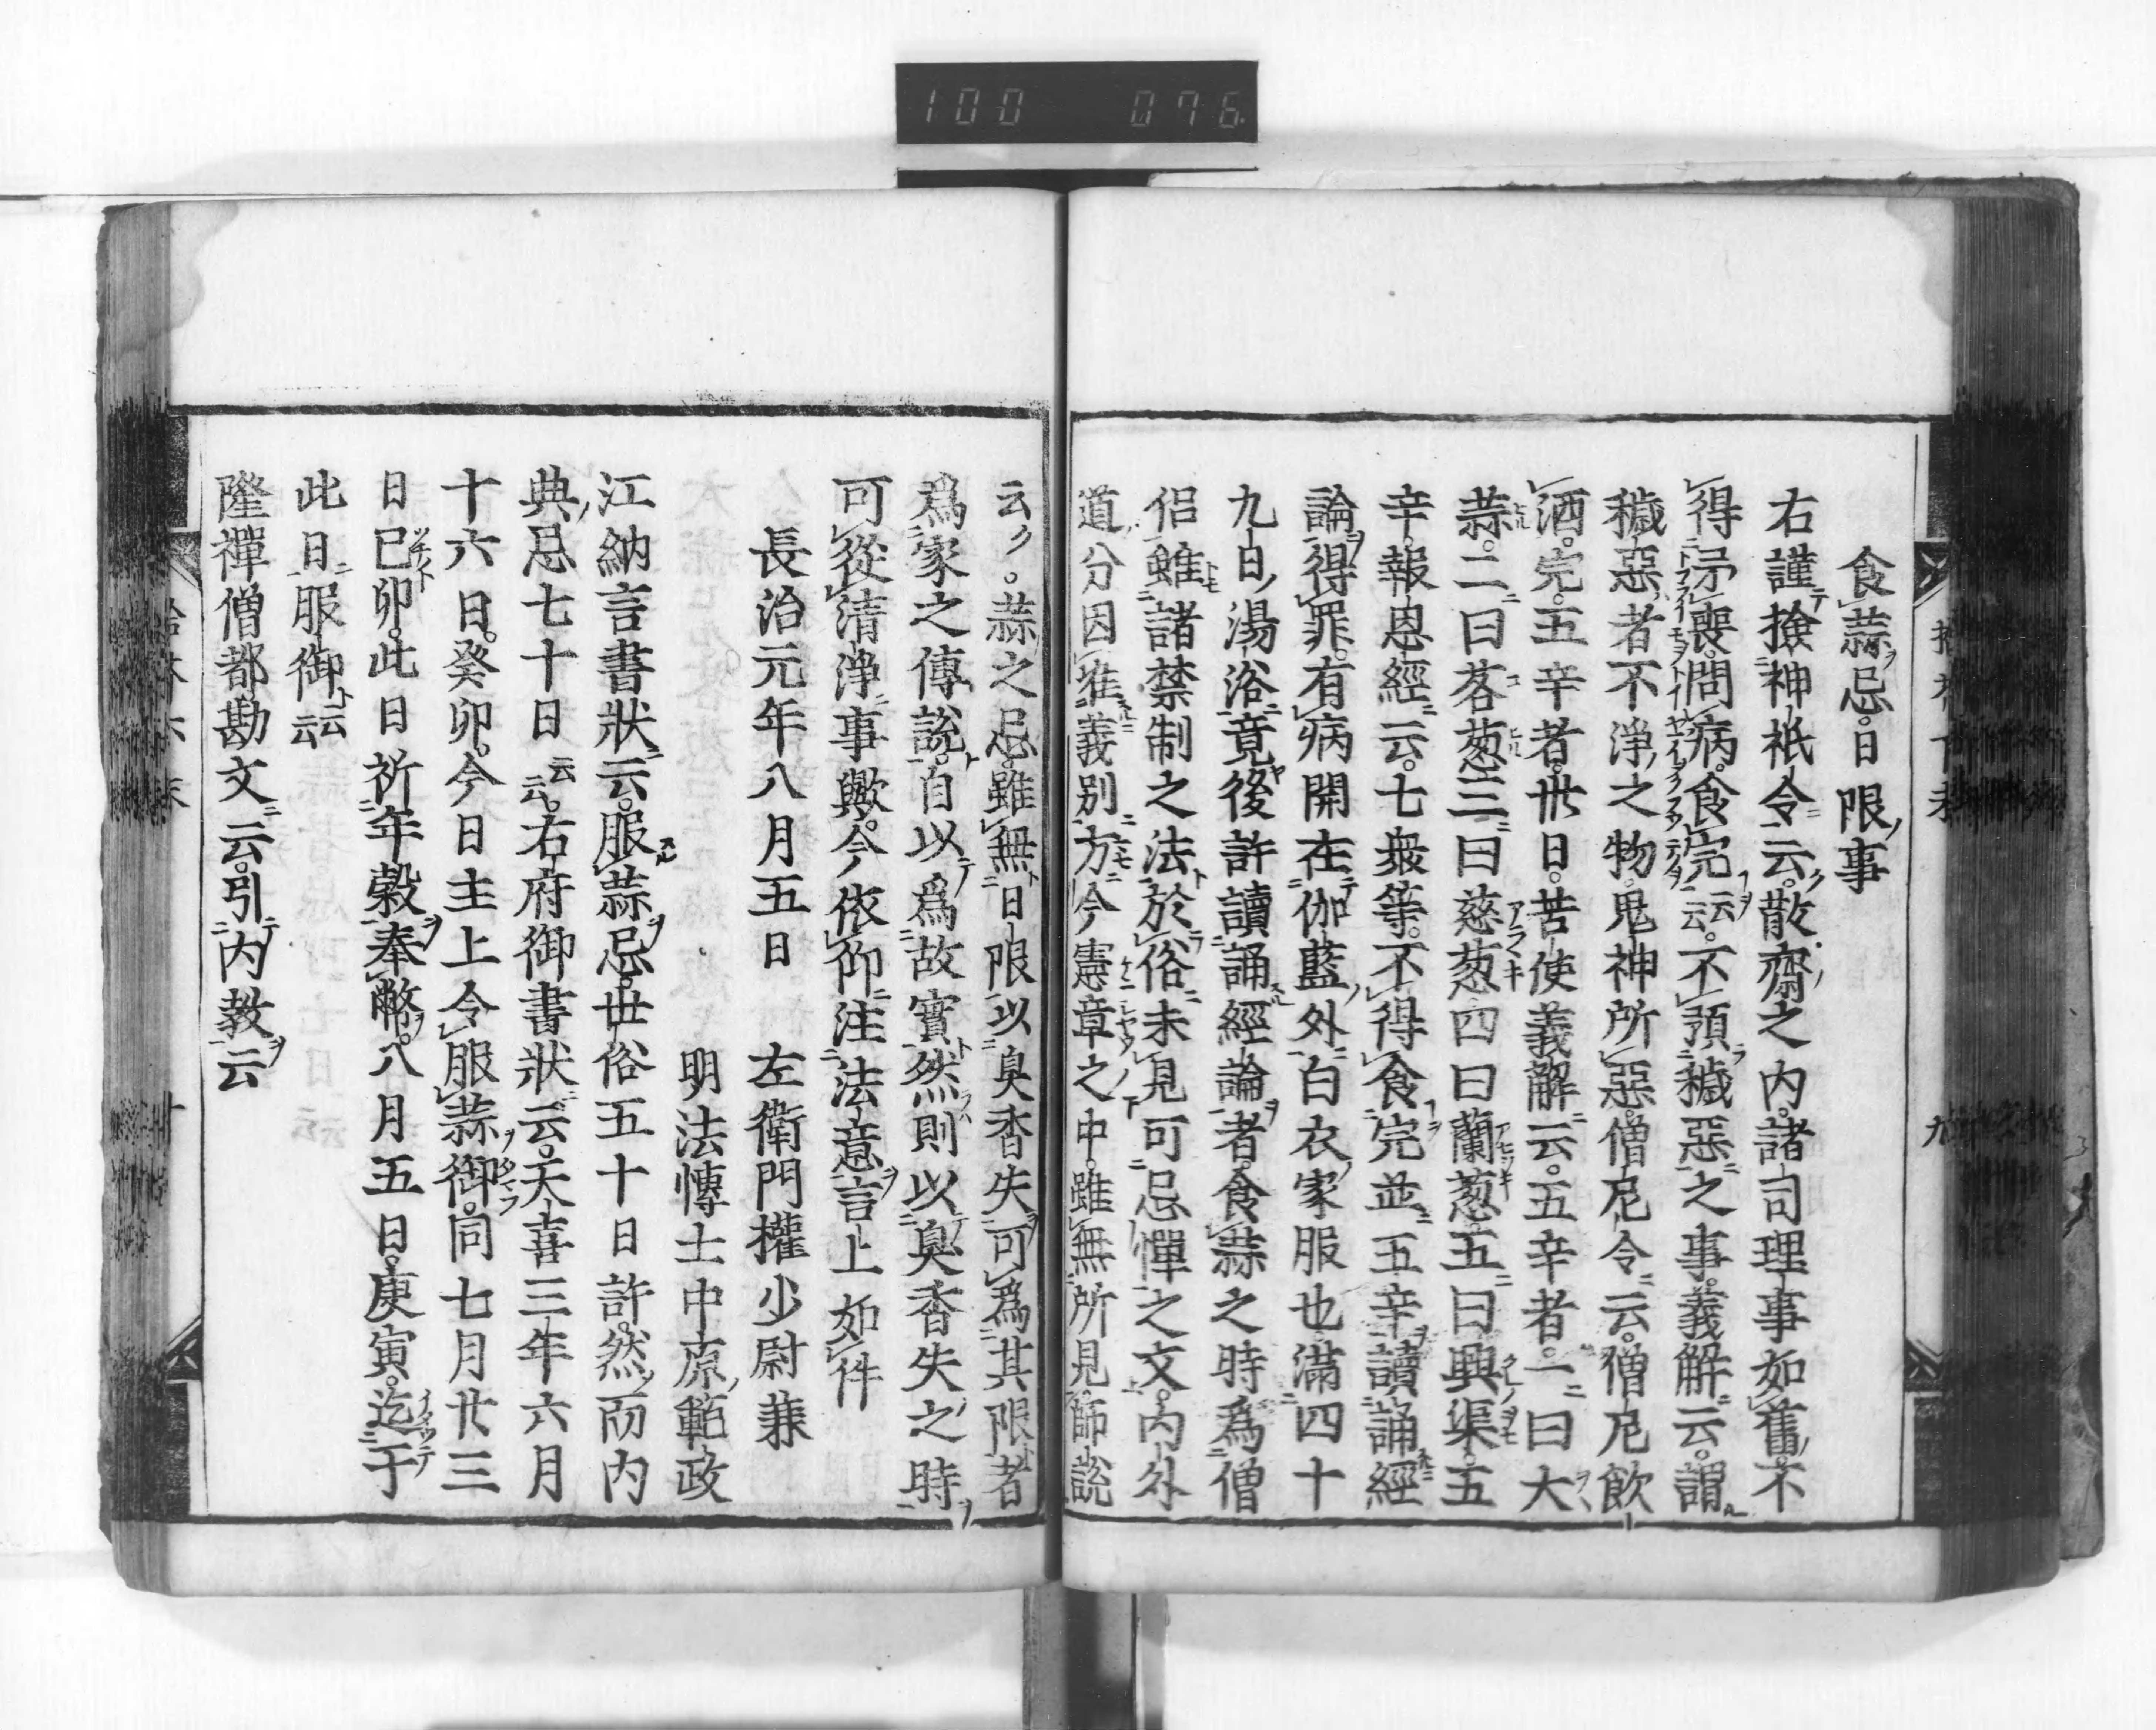 100 076
食蒜忌日限事
右謹撿神祇令云散齋之内諸司理事如舊不
得吊喪問病食宍云云不預穢惡之事義解云謂
穢惡者不淨之物鬼神所惡僧尼令云僧尼飲
酒宍五辛者卅日苦使義解云五辛者一曰大
蒜二曰茖葱三曰慈葱四曰蘭葱五曰興渠五
辛報恩經云七衆等不得食宍並五辛讀誦經
論得罪有病開在伽藍外白衣家服也滿四十
九日湯浴竟後許讀誦經論者食蒜之時爲僧
侶雖諸禁制之法於俗未見可忌憚之文内外
道分因准義別方今憲章之中雖無所見師説
云々蒜之忌雖無日限以臭香失可爲其限者
爲家之傳説自以爲故實然則以臭香失之時
可從清淨事歟今依仰注法意言上如件
長治元年八月五日 左衛門權少尉兼
明法愽士中原範政
江納言書狀云服蒜忌世俗五十日許然而内
典忌七十日云云右府御書狀云天喜三年六月
十六日癸卯今日主上令服蒜御同七月廿三
日己卯此日祈年穀奉幣八月五日庚寅迄于
此日服御云云
隆禪僧都勘文云引内教云